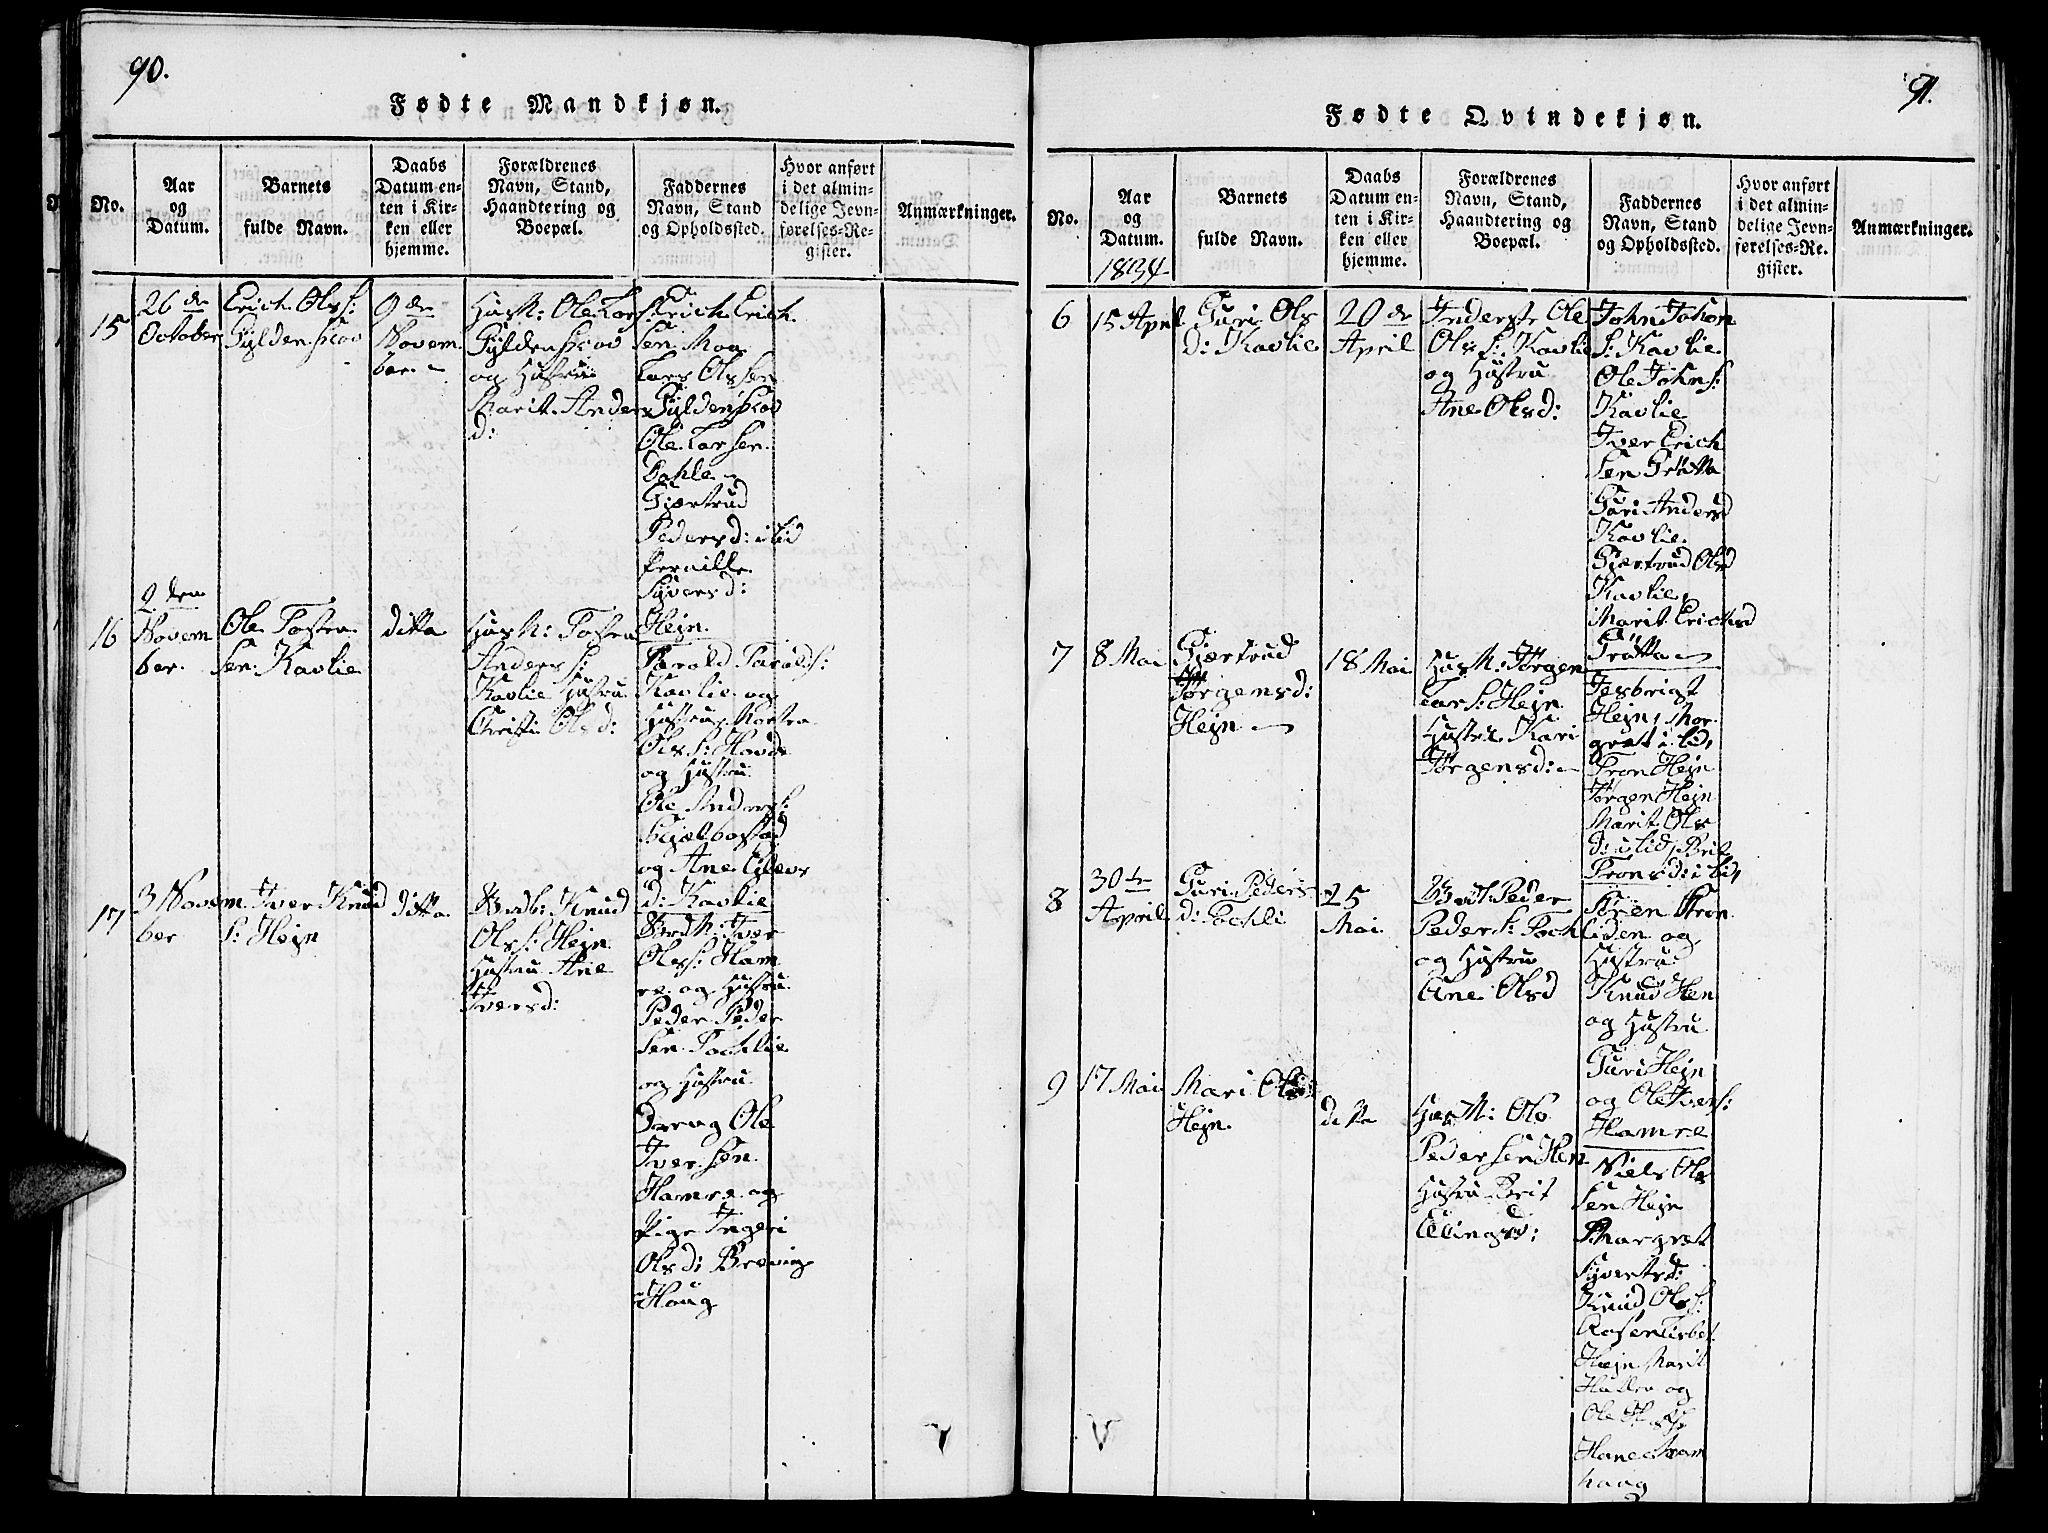 90.
Fødte Mandkjøn.
No.
Aar
og
Datum.
Barnets
fulde Navn.
Daabs
Datum en-
ten i Kir-
ken eller
hjemme.
Forældrenes
Navn, Stand,
Haandtering og
Boepæl.
Faddernes
Navn, Stand
og Opholdssted.
Hvor anført
i det almin-
delige Jevn-
førelses-Re-
gister.
Anmærkninger.
15
26 de
October
Erich Ols s:
Gyldenskov
9 de
Novem
ber.
Husm: Ole Lars s:
Gyldenskov
og Hustru
Marit Anders
d:
Erich Erich
sen Moa
Lars Olssen
Gyldenskov
Ole Larsen
Dahle
Giærtrud
Pedersd: i lid
Pernille
Syversd:
Hejn
16
2 den
Novem
ber.
Ole Tosten
sen Kavlie
ditto
Husm: Tosten
Anders s:
Kavlie Hustru
Christi Olsd:
Tarald Taralds:
Kavlie og
Hustru
Ols s:
og Hustru
Ole Anders s:
og Ane
d: Kavlie
17
3 Novem
ber
Iver Knud
s: Hejn
ditto
Knud
Ols s: Hejn
Hustru Ane
Iversd:
Iver
Ols s: Ham
re og Hustru
Peder Peder
sen Tochlie
og Hustru
Dreng Ole
Iversen
Hamre og
Pige Ingeri
Olsd: Brevig
Houg
91.
Fødte Qvindekjøn.
No.
Aar
og
Datum.
1834
Barnets
fulde Navn.
Daabs
Datum en-
ten i Kir-
ken eller
hjemme.
Forældrenes
Navn, Stand,
Haandtering og
Boepæl.
Faddernes
Navn, Stand
og Opholdssted.
Hvor anført
i det almin-
delige Jevn-
førelses-Re-
gister.
Anmærkninger.
6
15 April
Guri Ols
d: Kavlie
20 de
April
Inderst Ole
Ols s: Kavlie
og Hustru
Ane Olsd:
John Johan
s: Kavlie
Ole Johns:
Kavlie
Iver Erich
sen Grøtta
Guri Andersd
Kavlie
Giærtrud Olsd
Kavlie
Marit Erichsd
Grøtta
7
8 Mai
Giærtrud
Jørgensd:
Hejn
18 Mai
Husm: Jørgen
Lars s: Hejn
Hustru Kari
Jørgensd:
Hejn, Mar
græt i lid,
Tron Hejn
Jørgen Hejn
Marit Ols
d: i lid, Brit
Tronsd: i lid,
8
30 te
April
Guri Peders
d: Tochli
25
Mai
Peder
Peder s: Tochli
og Hustru
Ane Olsd
og
Hustru
Knud Hen
og Hustru
Guri Hejn
og Ole Ivers:
Hamre
9
17 Mai
Mari Ols
Hejn.
ditto
Husm: Ole
Pedersen Hen
Hustru Brit
Ellingsd:
Niels Ols
sen Hejn
Margræt
Syvertsd:
Knud Ols s:
Hejn Marit
og
Ole
houg